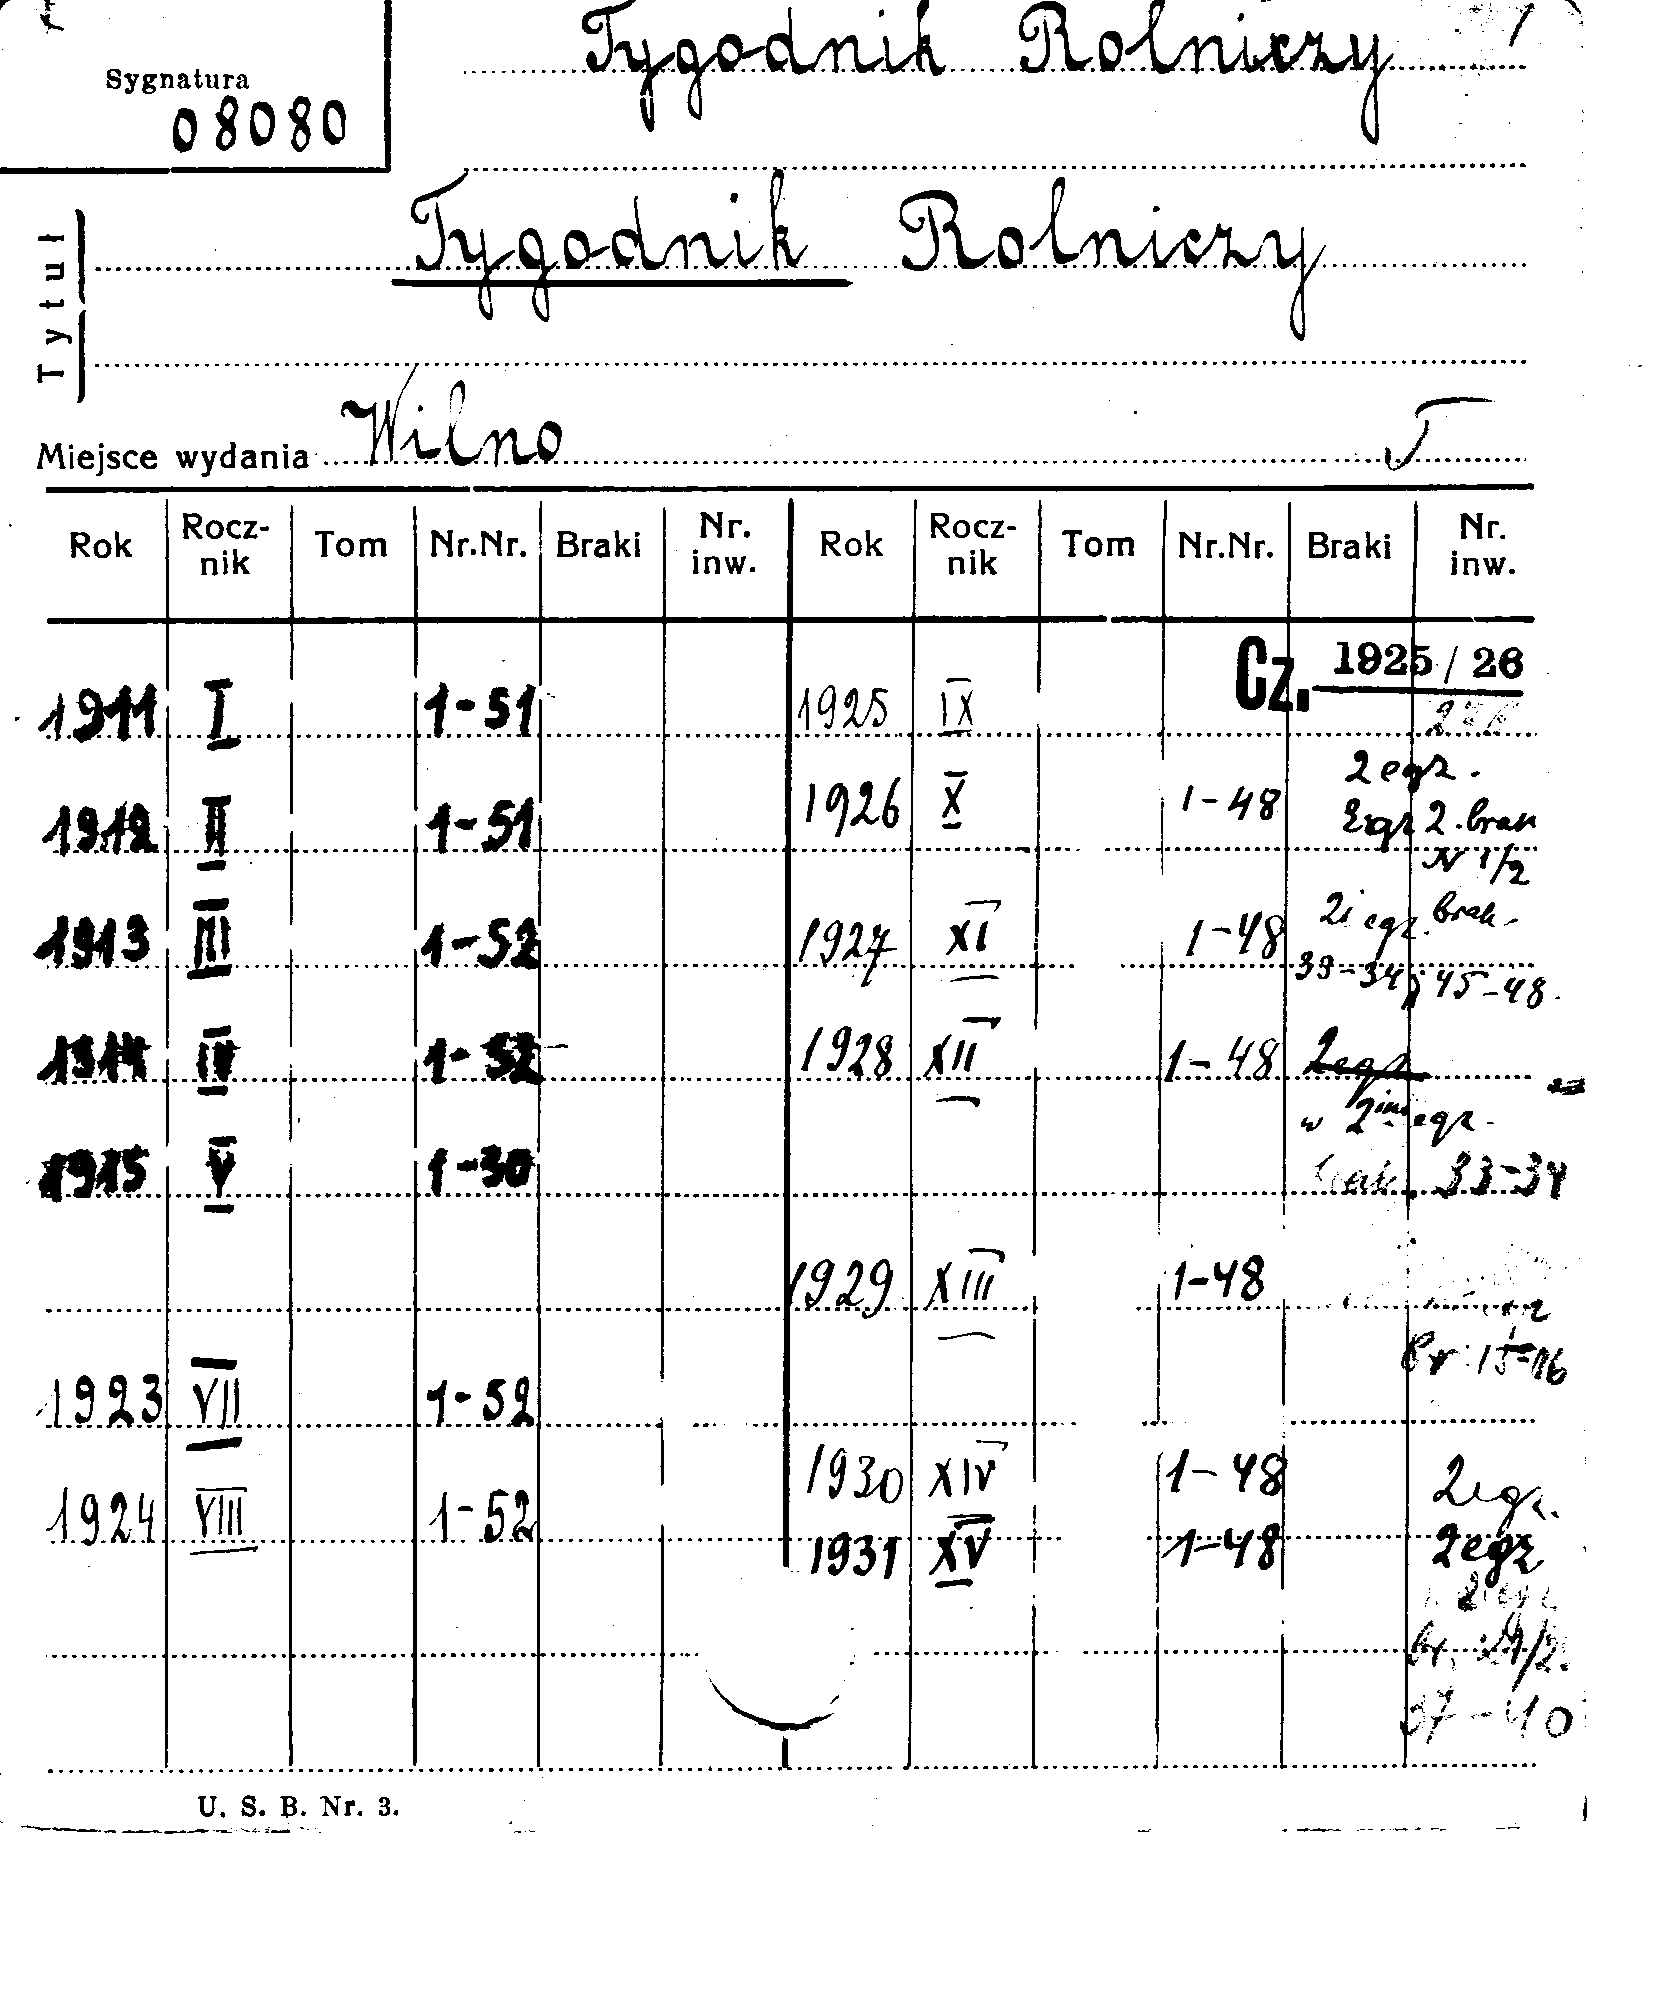 Tygodnik Rolniczy 1
Sygnatura
08080
Tytuł
Tygodnik Rolniczy
Miejsce wydania Wilno T
Rok Rocz-nik Tom Nr.Nr. Braki Nr. inw. Rok Rocz-nik Tom Nr.Nr. Braki Nr. inw.
Cz. 1925/26
1911 I 1-51 1925 IX
2 egz.
1912 II 1-51 1926 X 1-48 Egz 2. brak
N 1/2
1913 III 1-52 1927 XI 1-48 2i egz. brak
33-34; 45-48.
1914 IV 1-52 1928 XII 1-48 2egz
w 2im egz.
1915 V 1-30 brak. 33-34
1929 XIII 1-48
Br 15-16
1923 VII 1-52
1930 XIV 1-48 2egz.
1924 VIII 1-52
1931 XV 1-48 2egz
37-40
U. S. B. Nr. 3.